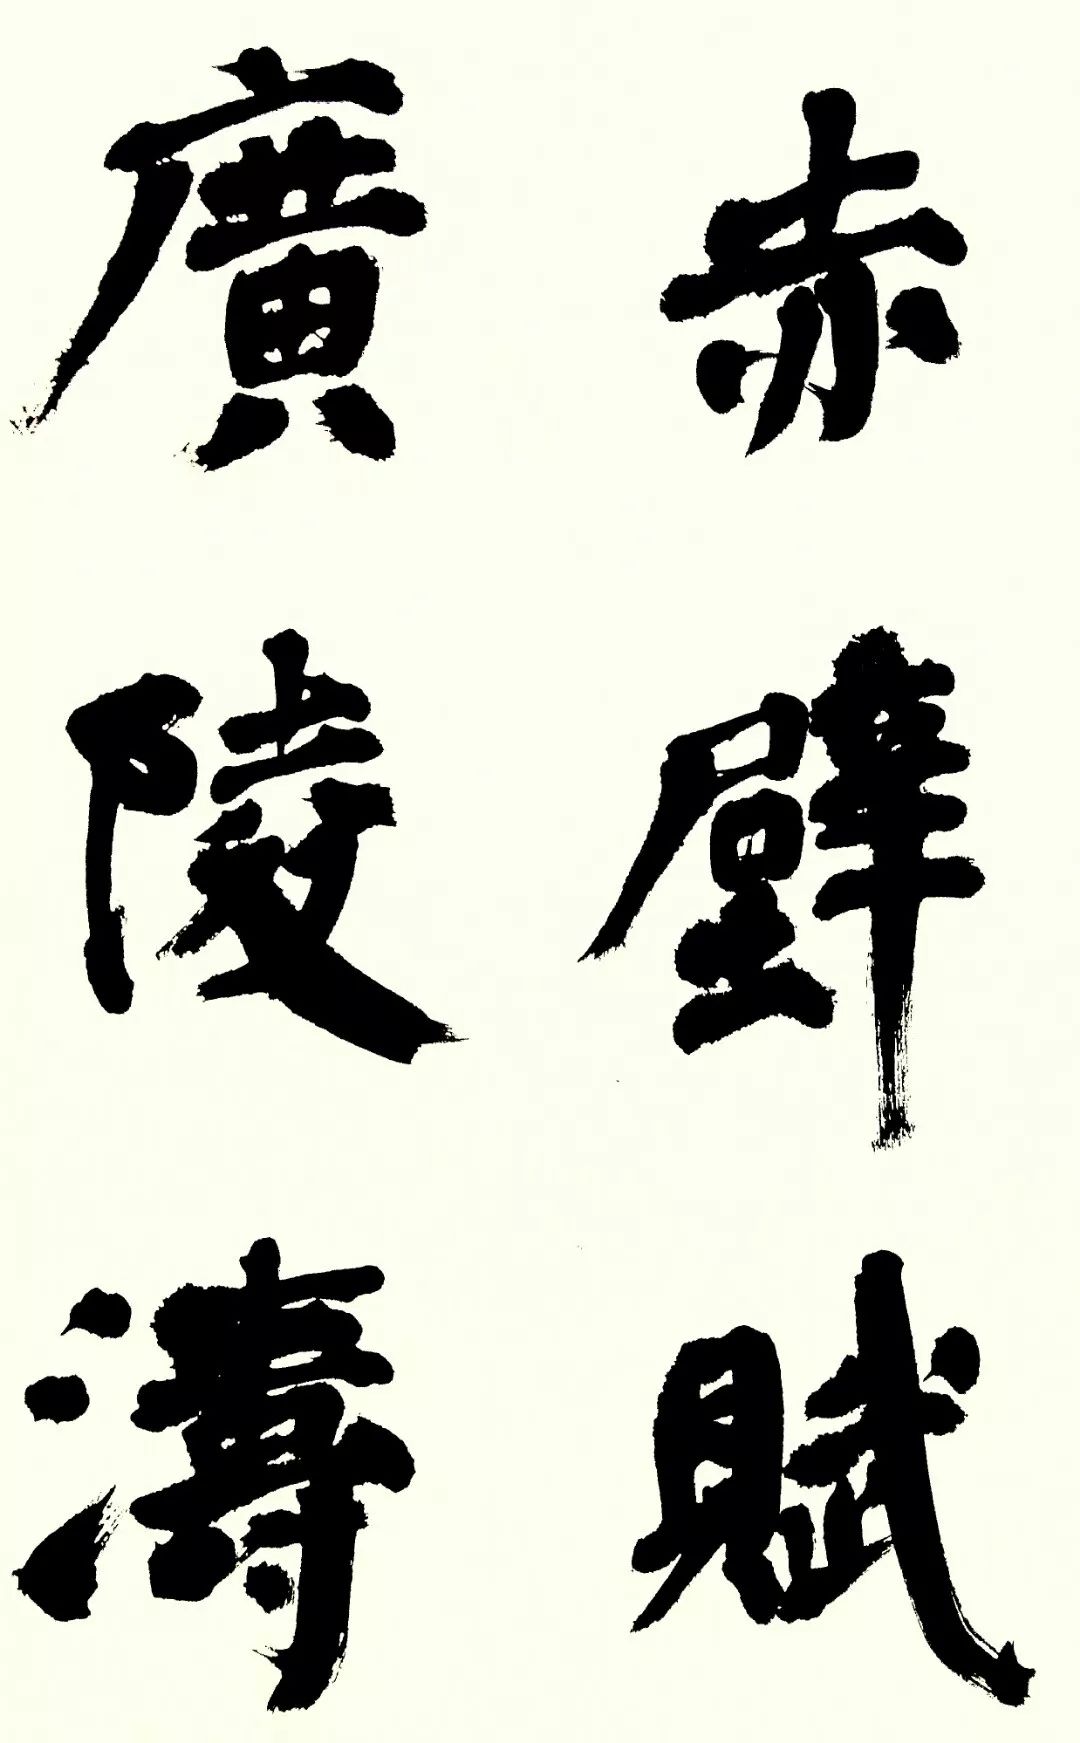 赤壁賦
廣陵濤